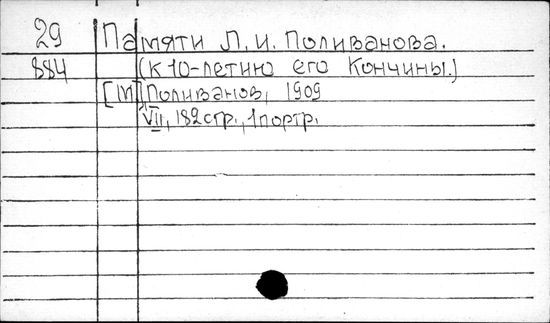 29 Памяти Л.И. Поливанова.
884 (К 10-летию его Кончины.)
[М] Поливанов, 1909
VII, 182 стр., 1 портр.